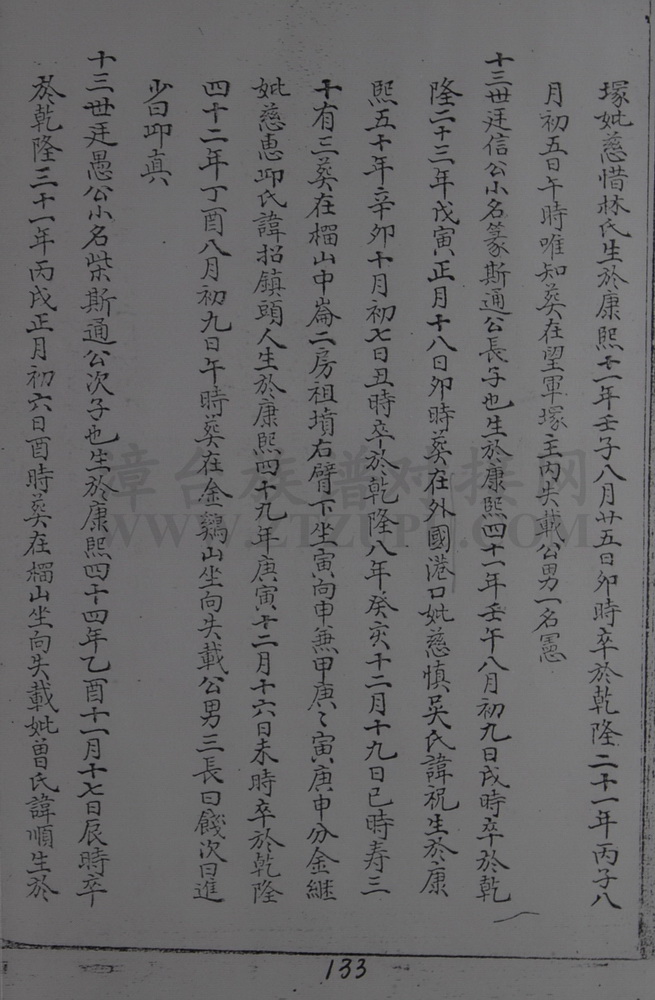 塚妣慈惜林氏生於康熙十一年壬子八月廿五日卯時卒於乾隆二十一年丙子八
月初五日午時唯知葬在望軍塚主內失載公男一名憲
十三世廷信公小名篆斯通公長子也生於康熙四十一年壬午八月初九日戌時卒於乾
隆二十三年戊寅正月十八日卯時葬在外國港口妣慈慎吳氏諱祝生於康
熙五十年辛卯十月初七日丑時卒於乾隆八年癸亥十二月十九日巳時寿三
十有三葬在榴山中崙二房祖墳右臂下坐寅向申兼甲庚〻寅庚申分金継
妣慈惠邱氏諱招鎮頭人生於康熙四十九年庚寅十二月十六日未時卒於乾隆
四十二年丁酉八月初九日午時葬在金鷄山坐向失載公男三長曰餞次曰進
少曰卭真
十三世廷愚公小名柴斯通公次子也生於康熙四十四年乙酉十一月十七日辰時卒
於乾隆三十一年丙戌正月初六日酉時葬在榴山坐向失載妣曾氏諱順生於
133
漳台族谱对接网
WWW.ZTZUPU.COM